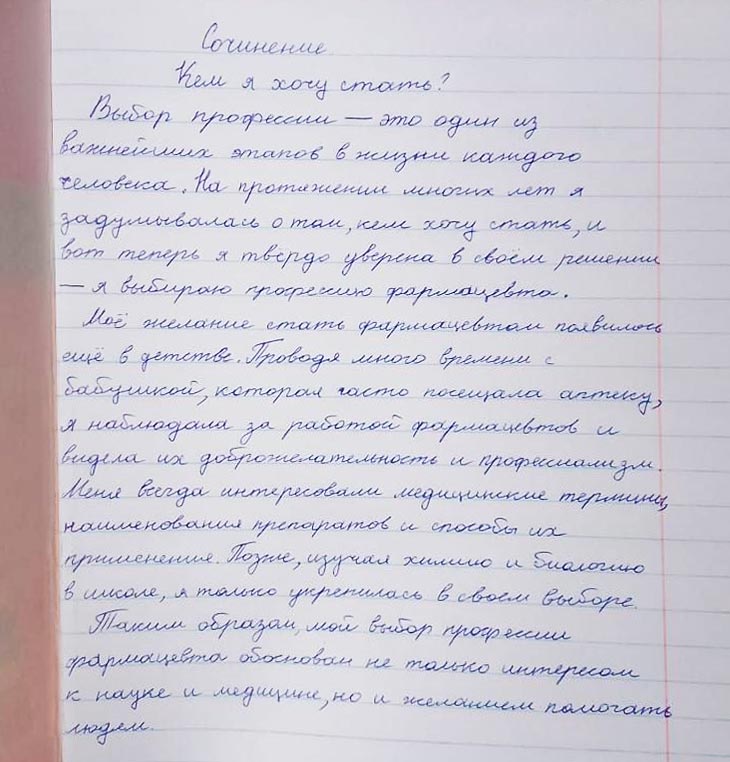 Сочинение
Кем я хочу стать?
Выбор профессии — это один из
важнейших этапов в жизни каждого
человека. На протяжении многих лет я
задумывалась о том, кем хочу стать, и
вот теперь я твёрдо уверена в своём решении
— я выбираю профессию фармацевта.
Моё желание стать фармацевтом появилось
ещё в детстве. Проводя много времени с
бабушкой, которая часто посещала аптеку,
я наблюдала за работой фармацевтов и
видела их доброжелательность и профессиализм.
Меня всегда интересовали медицинские термины,
наименования препаратов и способы их
применения. Позже, изучая химию и биологию
в школе, я только укрепилась в своем выборе.
Таким образом, мой выбор профессии
фармацевта обоснован не только интересом
к науке и медицине, но и желанием помогать
людям.